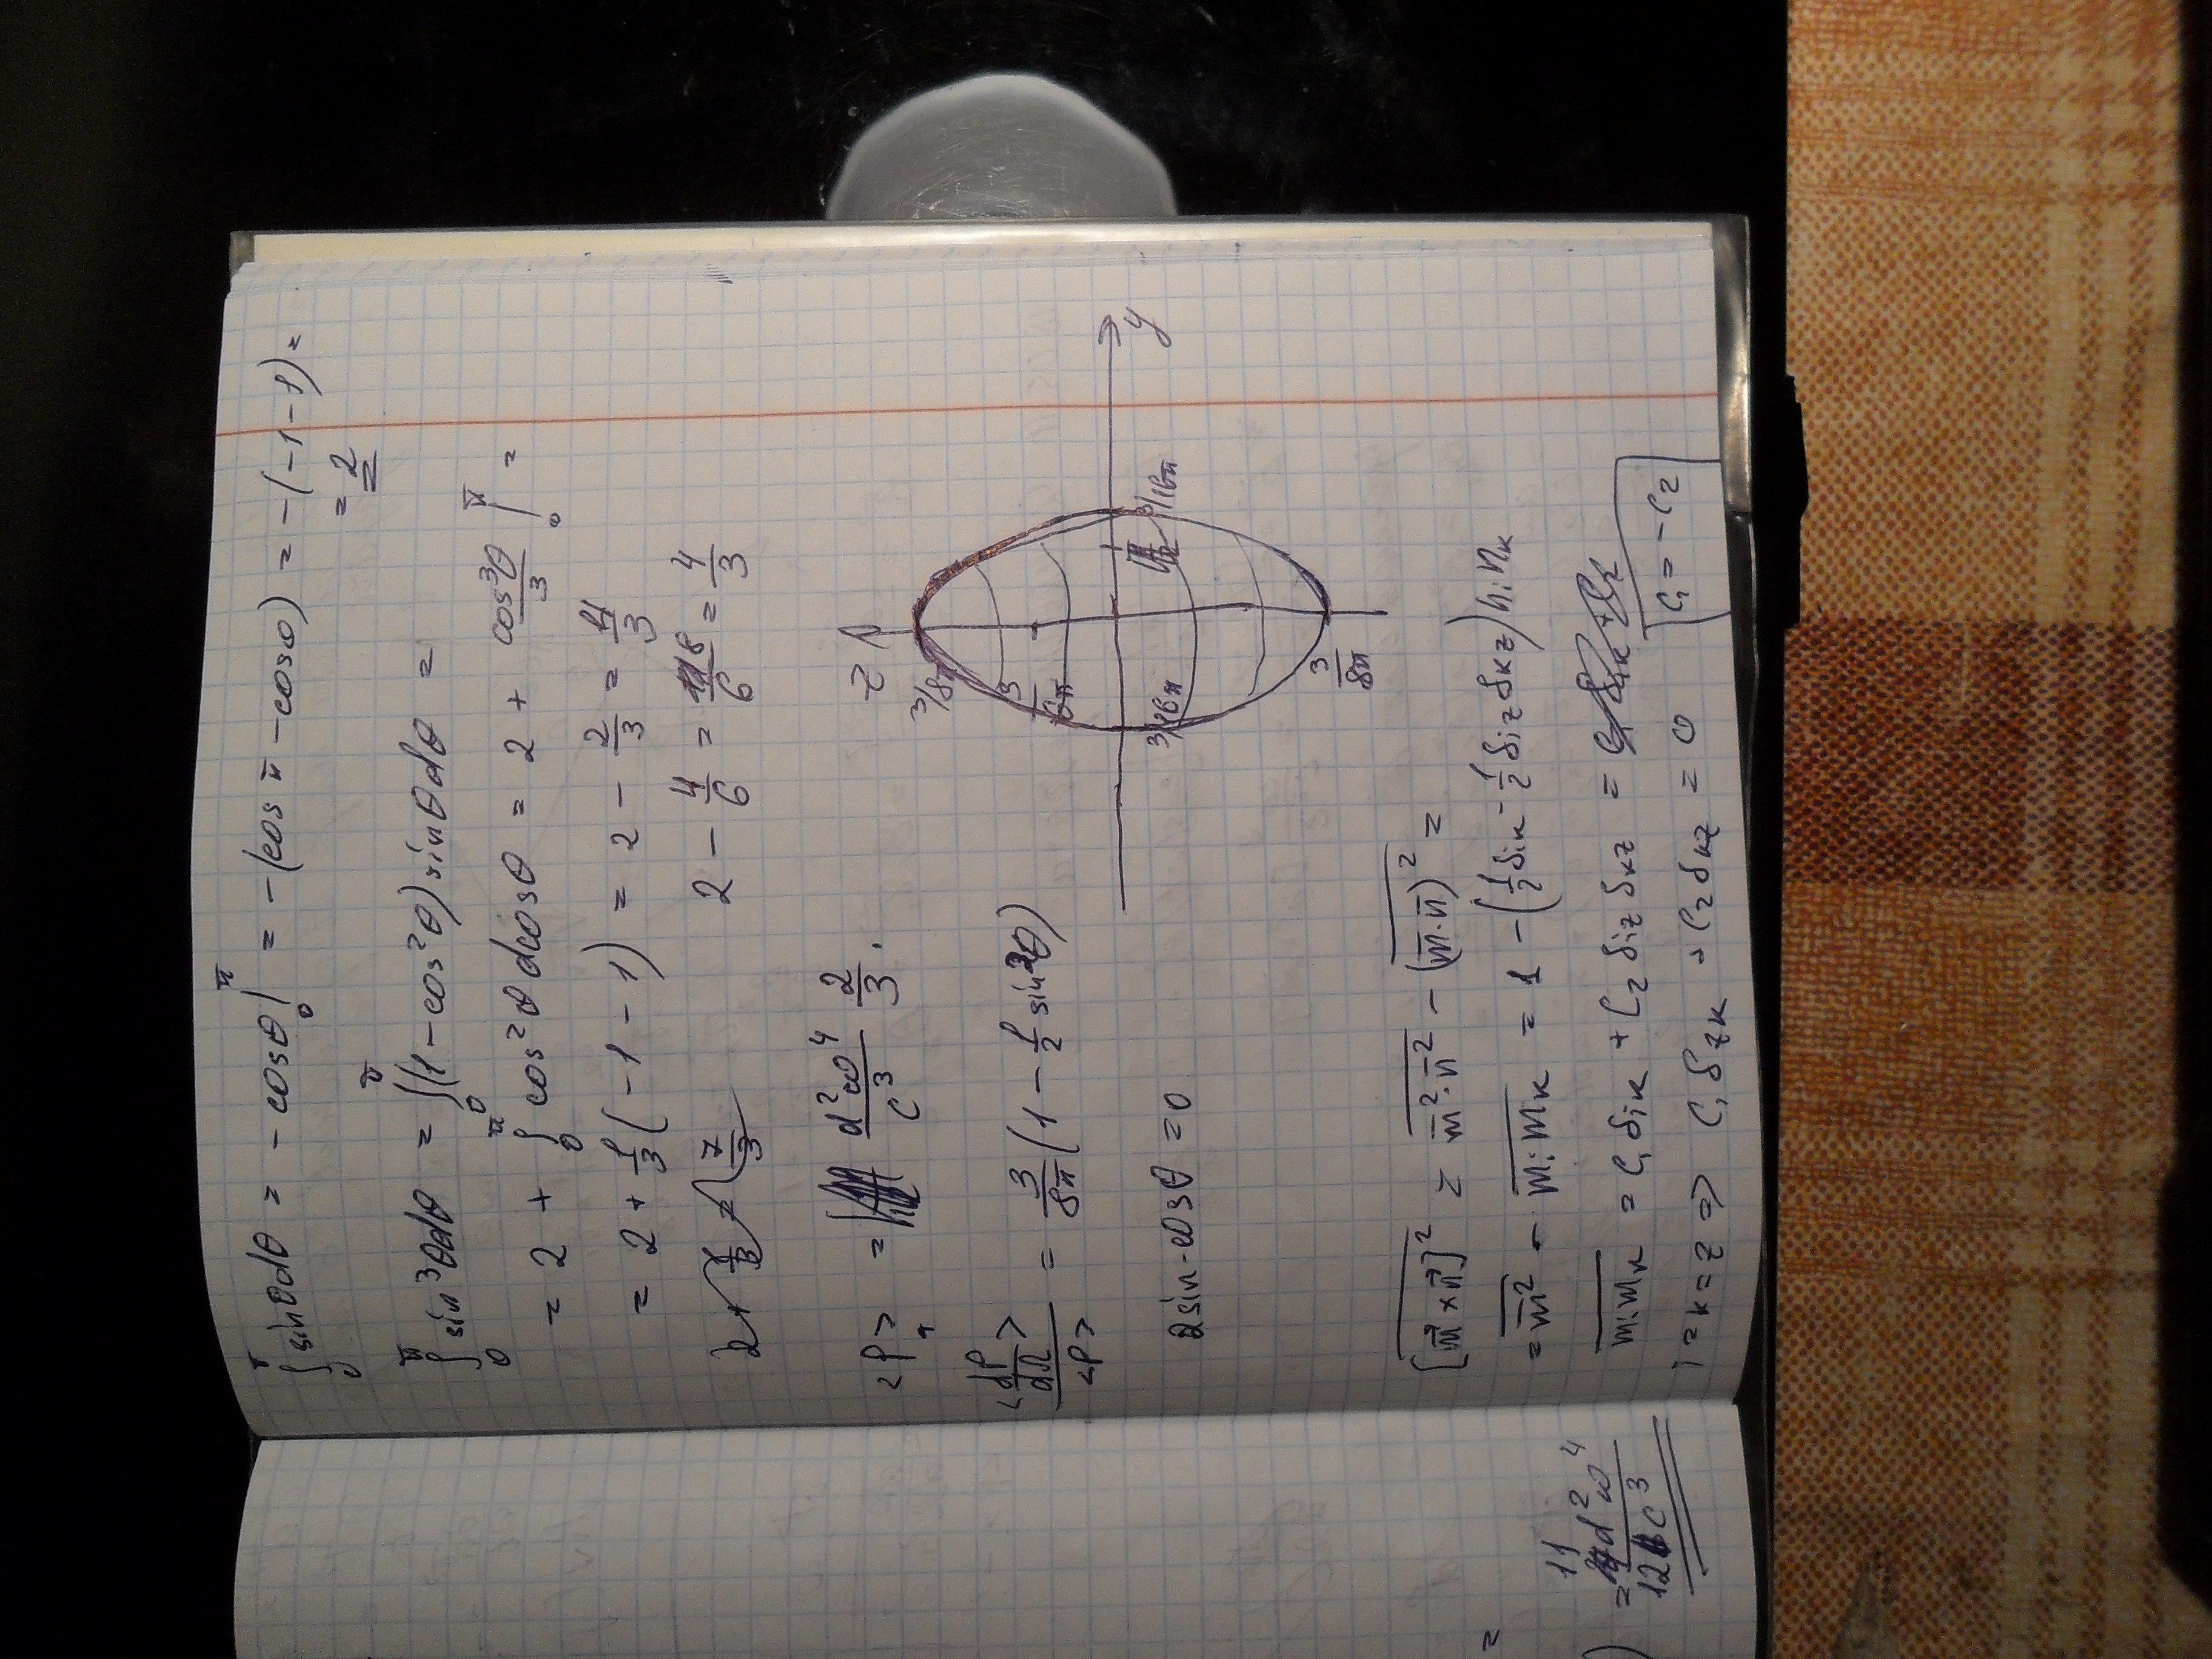 ∫₀^π sinθdθ = - cosθ|₀^π = -(cosπ - cos0) = -(-1-1) =
= 2
∫₀^π sin³θdθ = ∫₀^π (1-cos²θ)sinθdθ =
= 2 + ∫₀^π cos²θ dcosθ = 2 + cos³θ/3 |₀^π =
= 2 + 1/3(-1-1) = 2 - 2/3 = 4/3
2 - 4/6 = 8/6 = 4/3
<P> = d²ω⁴/c³ 2/3.
<dP/dΩ>/<P> = 3/8π (1 - 1/2 sin²θ)
2sin·cosθ = 0
z
3/8π
3/16π
3/16π
y
3/8π
[m×n]² = m²·n² - (m·n)² =
= m² - mᵢmₖ = 1 - (1/2 δᵢₖ - 1/2 δᵢz δₖz) nᵢnₖ
mᵢmₖ = C₁δᵢₖ + C₂ δᵢz δₖz =
i=k=z ⇒ C₁δzₖ + C₂δₖz = 0
C₁ = -C₂
=
) = 11d²ω⁴/12c³